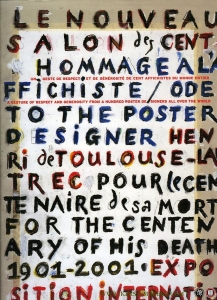 LE NOUVEAU
SALON des CENT
HOMMAGE A L'A
GESTE DE RESPECT ET DE GÉNÉROSITÉ DE CENT AFFICHISTES DU MONDE ENTIER
FFICHISTE/ODE
A GESTURE OF RESPECT AND GENEROSITY FROM A HUNDRED POSTER DESIGNERS ALL OVER THE WORLD
TO THE POSTER
DESIGNER HEN
RI de TOULOUSE-LAU
TREC POUR le CEN
TENAIRE de sa MORT
FOR THE CENTEN
ARY OF HIS DEATH
1901-2001. EXPO
SITION INTERNATI